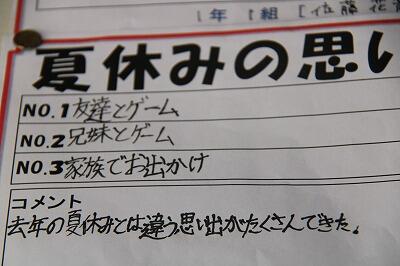 1年 1組 [佐藤 花
夏休みの思い
NO.1 友達とゲーム
NO.2 兄妹とゲーム
NO.3 家族でお出かけ
コメント
去年の夏休みとは違う思い出がたくさんできた。